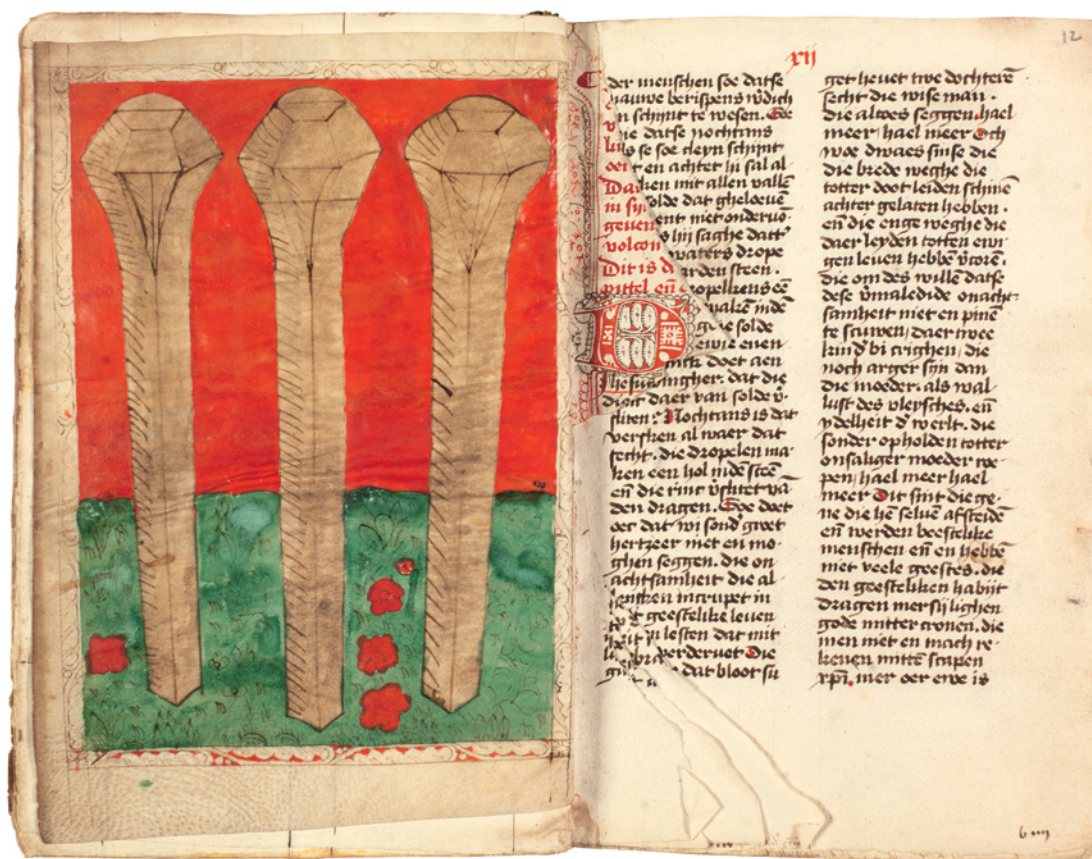 12
xii
der menschen soe datse
nauwe berispens w̄dich
n schijnt te wesen. Soe
ie datse nochtans
ls se soe cleyn schijnt
t en achtet hi sal al
ken mit allen vallē
solde dat gheloeuē
ent niet ondervō
s hij saghe datt
waters drope
arden steen.
ropelkens eē
maken indē
gōte solde
ewie enen
inck doet aen
vingher. dat die
dinck daer van solde v̄
sliten. Nochtans is dat
versken al waer dat
secht. die dropelen ma
ken een hol indē steē
en̄ die rinc v̄slitet vā
den dragen. Soe doet
oec dat wi sond̕ groet
hertzeer niet en mo
ghen seggen. die on
achtsamheit die al
lencken incrupet in
geestelike leuen
lesten dat mit
verderuet Die
dat bloot su
v
lu
oer
Dat
in sij
geuen
volcom
Dit is d
pittel en̄
get heuet twe dochterē
secht die wise man.
die altoes seggen. hael
meer hael meer Och
woe dwaes sinse die
die brede weghe die
totter doot leiden schinē
achter gelaten hebben.
en̄ die enge weghe die
daer leyden totten ewi
gen leuen hebbē v̄coren.
die om des willē datse
dese v̄maledide onacht
samheit niet en pinē
te scuwen, daer twee
kind̕ bi crighen, die
noch arger sijn dan
die moeder. als wal
lust des vleysches. en̄
ydelheit d̕ werlt. die
sonder opholden totter
onsaliger moeder roe
pen, hael meer hael
meer Dit sint die ge
ne die hē seluē afsceidē
en̄ werden beestelike
menschen en̄ en hebbē
niet veele geestes. die
den geesteliken habijt
dragen mer sij lighen
gode mitter cronen. die
men niet en mach re
kenen mittē scapen
xp̄i. mer oer erue is
b iiij